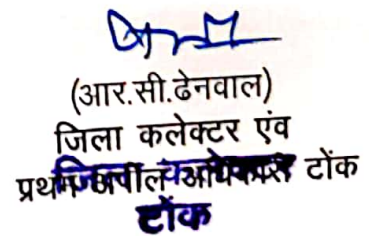 (आर.सी.ढेनवाल)
जिला कलेक्टर एंव
प्रथम अपील अधिकारी टोंक
टोंक